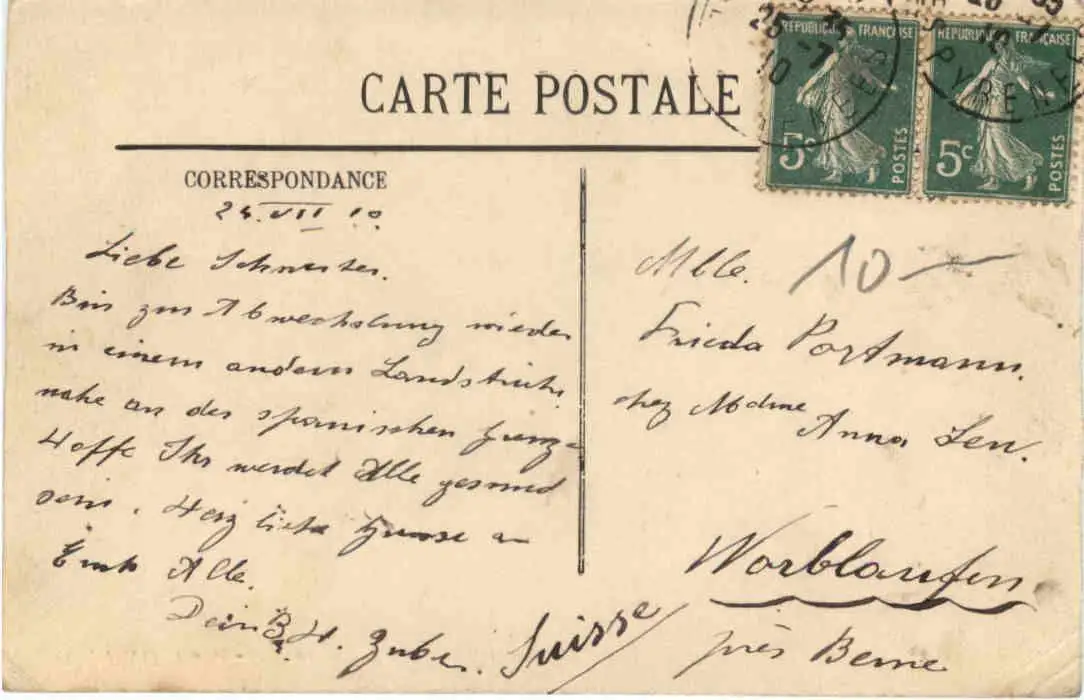 CARTE POSTALE
RÉPUBLIQUE FRANÇAISE
5c
POSTES
RÉPUBLIQUE FRANÇAISE
5c
POSTES
25 -7
10
PYRENEES
CORRESPONDANCE
24. VII 10
Liebe Schwester.
Bin zur Abwechslung wieder
in einem andern Landstriche
nahe an der spanischen Grenze
Hoffe Ihr werdet Alle gesund
sein. Herzliche Grüsse an
Euch Alle.
Dein Br. H. Zuber.
Mlle.
10 —
Frieda Portmann.
chez Mdme
Anna
Worblaufen
près Berne
Suisse